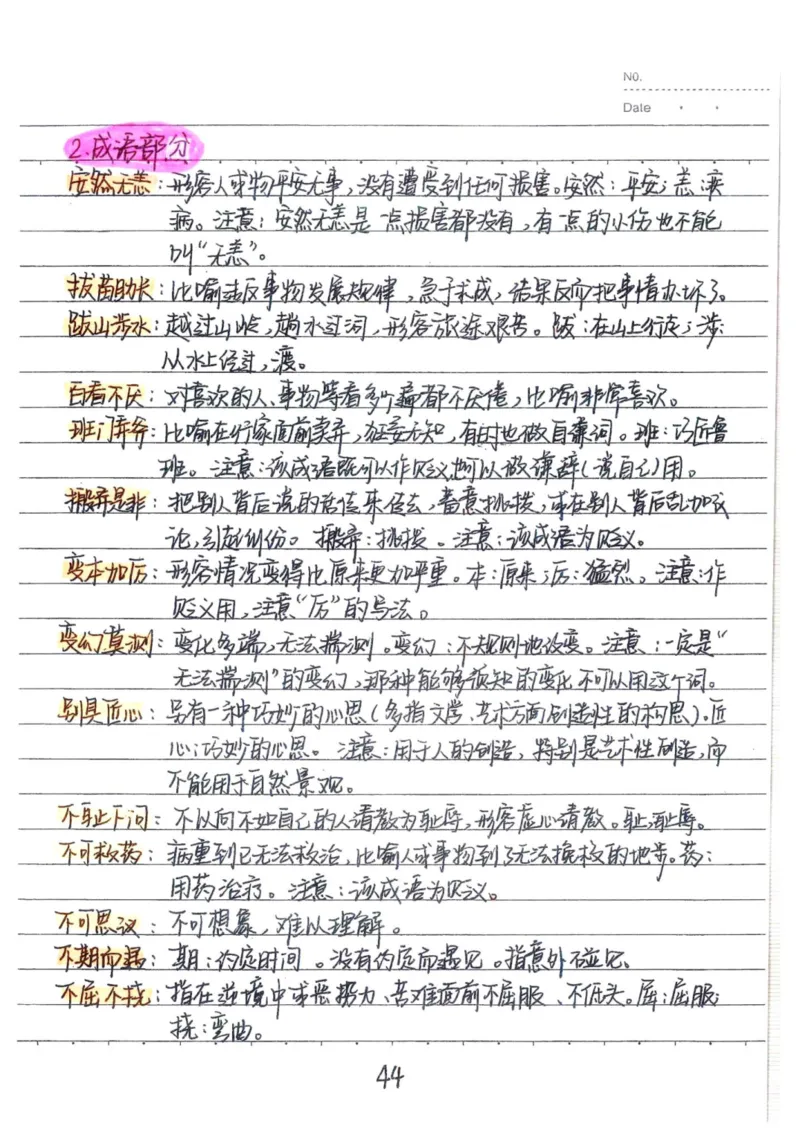 No.
Date
2.成语部分
安然无恙：形容人或物平安无事，没有遭受到任何损害。安然：平安；恙：疾
病。注意：安然无恙是一点损害都没有，有一点的小伤也不能
叫“无恙”。
拔苗助长：比喻违反事物发展规律，急于求成，结果反而把事情办坏了。
跋山涉水：越过山岭，趟水过河，形容旅途艰苦。跋：在山上行走；涉：
从水上经过，渡。
百看不厌：对喜欢的人、事物等看多少遍都不厌倦，比喻非常喜欢。
班门弄斧：比喻在行家面前卖弄，狂妄无知，有时也做自谦词。班：巧匠鲁
班。注意：该成语既可以作贬义也可以做谦辞（说自己）用。
搬弄是非：把别人背后说的话传来传去，蓄意挑拨，或在别人背后乱加议
论，引起纠份。搬弄：挑拨。注意：该成语为贬义。
变本加厉：形容情况变得比原来更加严重。本：原来；厉：猛烈。注意：作
贬义用，注意“厉”的写法。
变幻莫测：变化多端，无法揣测。变幻：不规则地改变。注意：一定是“
无法揣测”的变幻，那种能够预知的变化不可以用这个词。
别具匠心：另有一种巧妙的心思（多指文学、艺术方面创造性的构思）。匠
心：巧妙的心思。注意：用于人的创造，特别是艺术性创造，而
不能用于自然景观。
不耻下问：不以向不如自己的人请教为耻辱，形容虚心请教。耻：耻辱。
不可救药：病重到已无法救治，比喻人或事物到了无法挽救的地步。药：
用药治疗。注意：该成语为贬义。
不可思议：不可想象，难以理解。
不期而遇：期：约定时间。没有约定而遇见。指意外碰见。
不屈不挠：指在逆境中或恶势力、苦难面前不屈服、不低头。屈：屈服；
挠：弯曲。
44